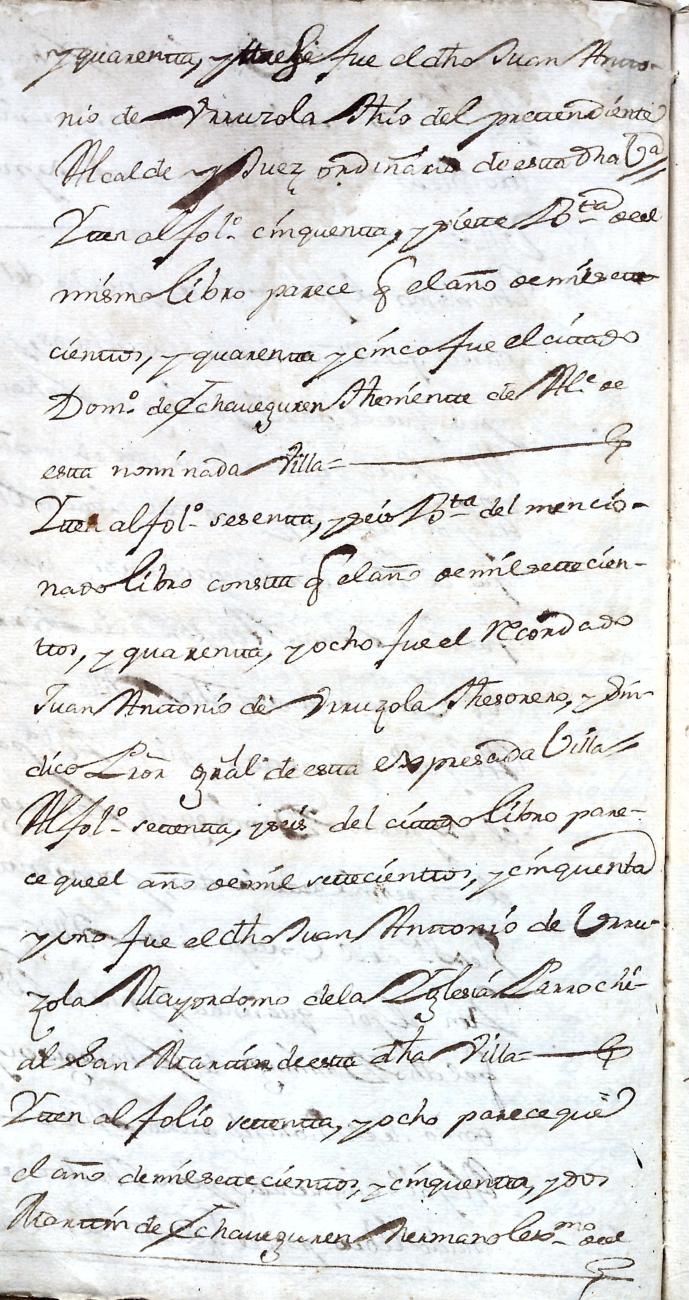 y quarentta, y ttrese fue el dho Juan Antto-
nio de Urruzola thio del prettendiente
Alcalde y Juez ordinario de estta dha Va
Ytten al folo. cinquentta, y siette Bta. de el
mismo libro parece q el año de mil sette
cienttos, y quarentta y cinco fue el cittado
Domo. de Echaveguren theniente de Ale. de
estta nominada Villa=
Ytten al folo. sesentta, y seis Bta. del mencio-
nado libro constta q el año de mil settecien-
ttos, y quarentta, y ocho fue el recordado
Juan Anttonio de Urruzola thesorero, y Sin-
dico Pror gral de estta expresada Villa
Al folo. settentta, y seis del cittado libro pare-
ce que el año de mil settecienttos, y cinquenta
y uno fue el dho Juan Anttonio de Urru-
zola Mayordomo de la Yglesia Parrochi-
al San Marttin de estta dha Villa=
Ytten al folio settentta, y ocho parece que
el año de mil settecienttos, y cinquentta, y dos
Marttin de Echaveguren hermano lexmo. de el